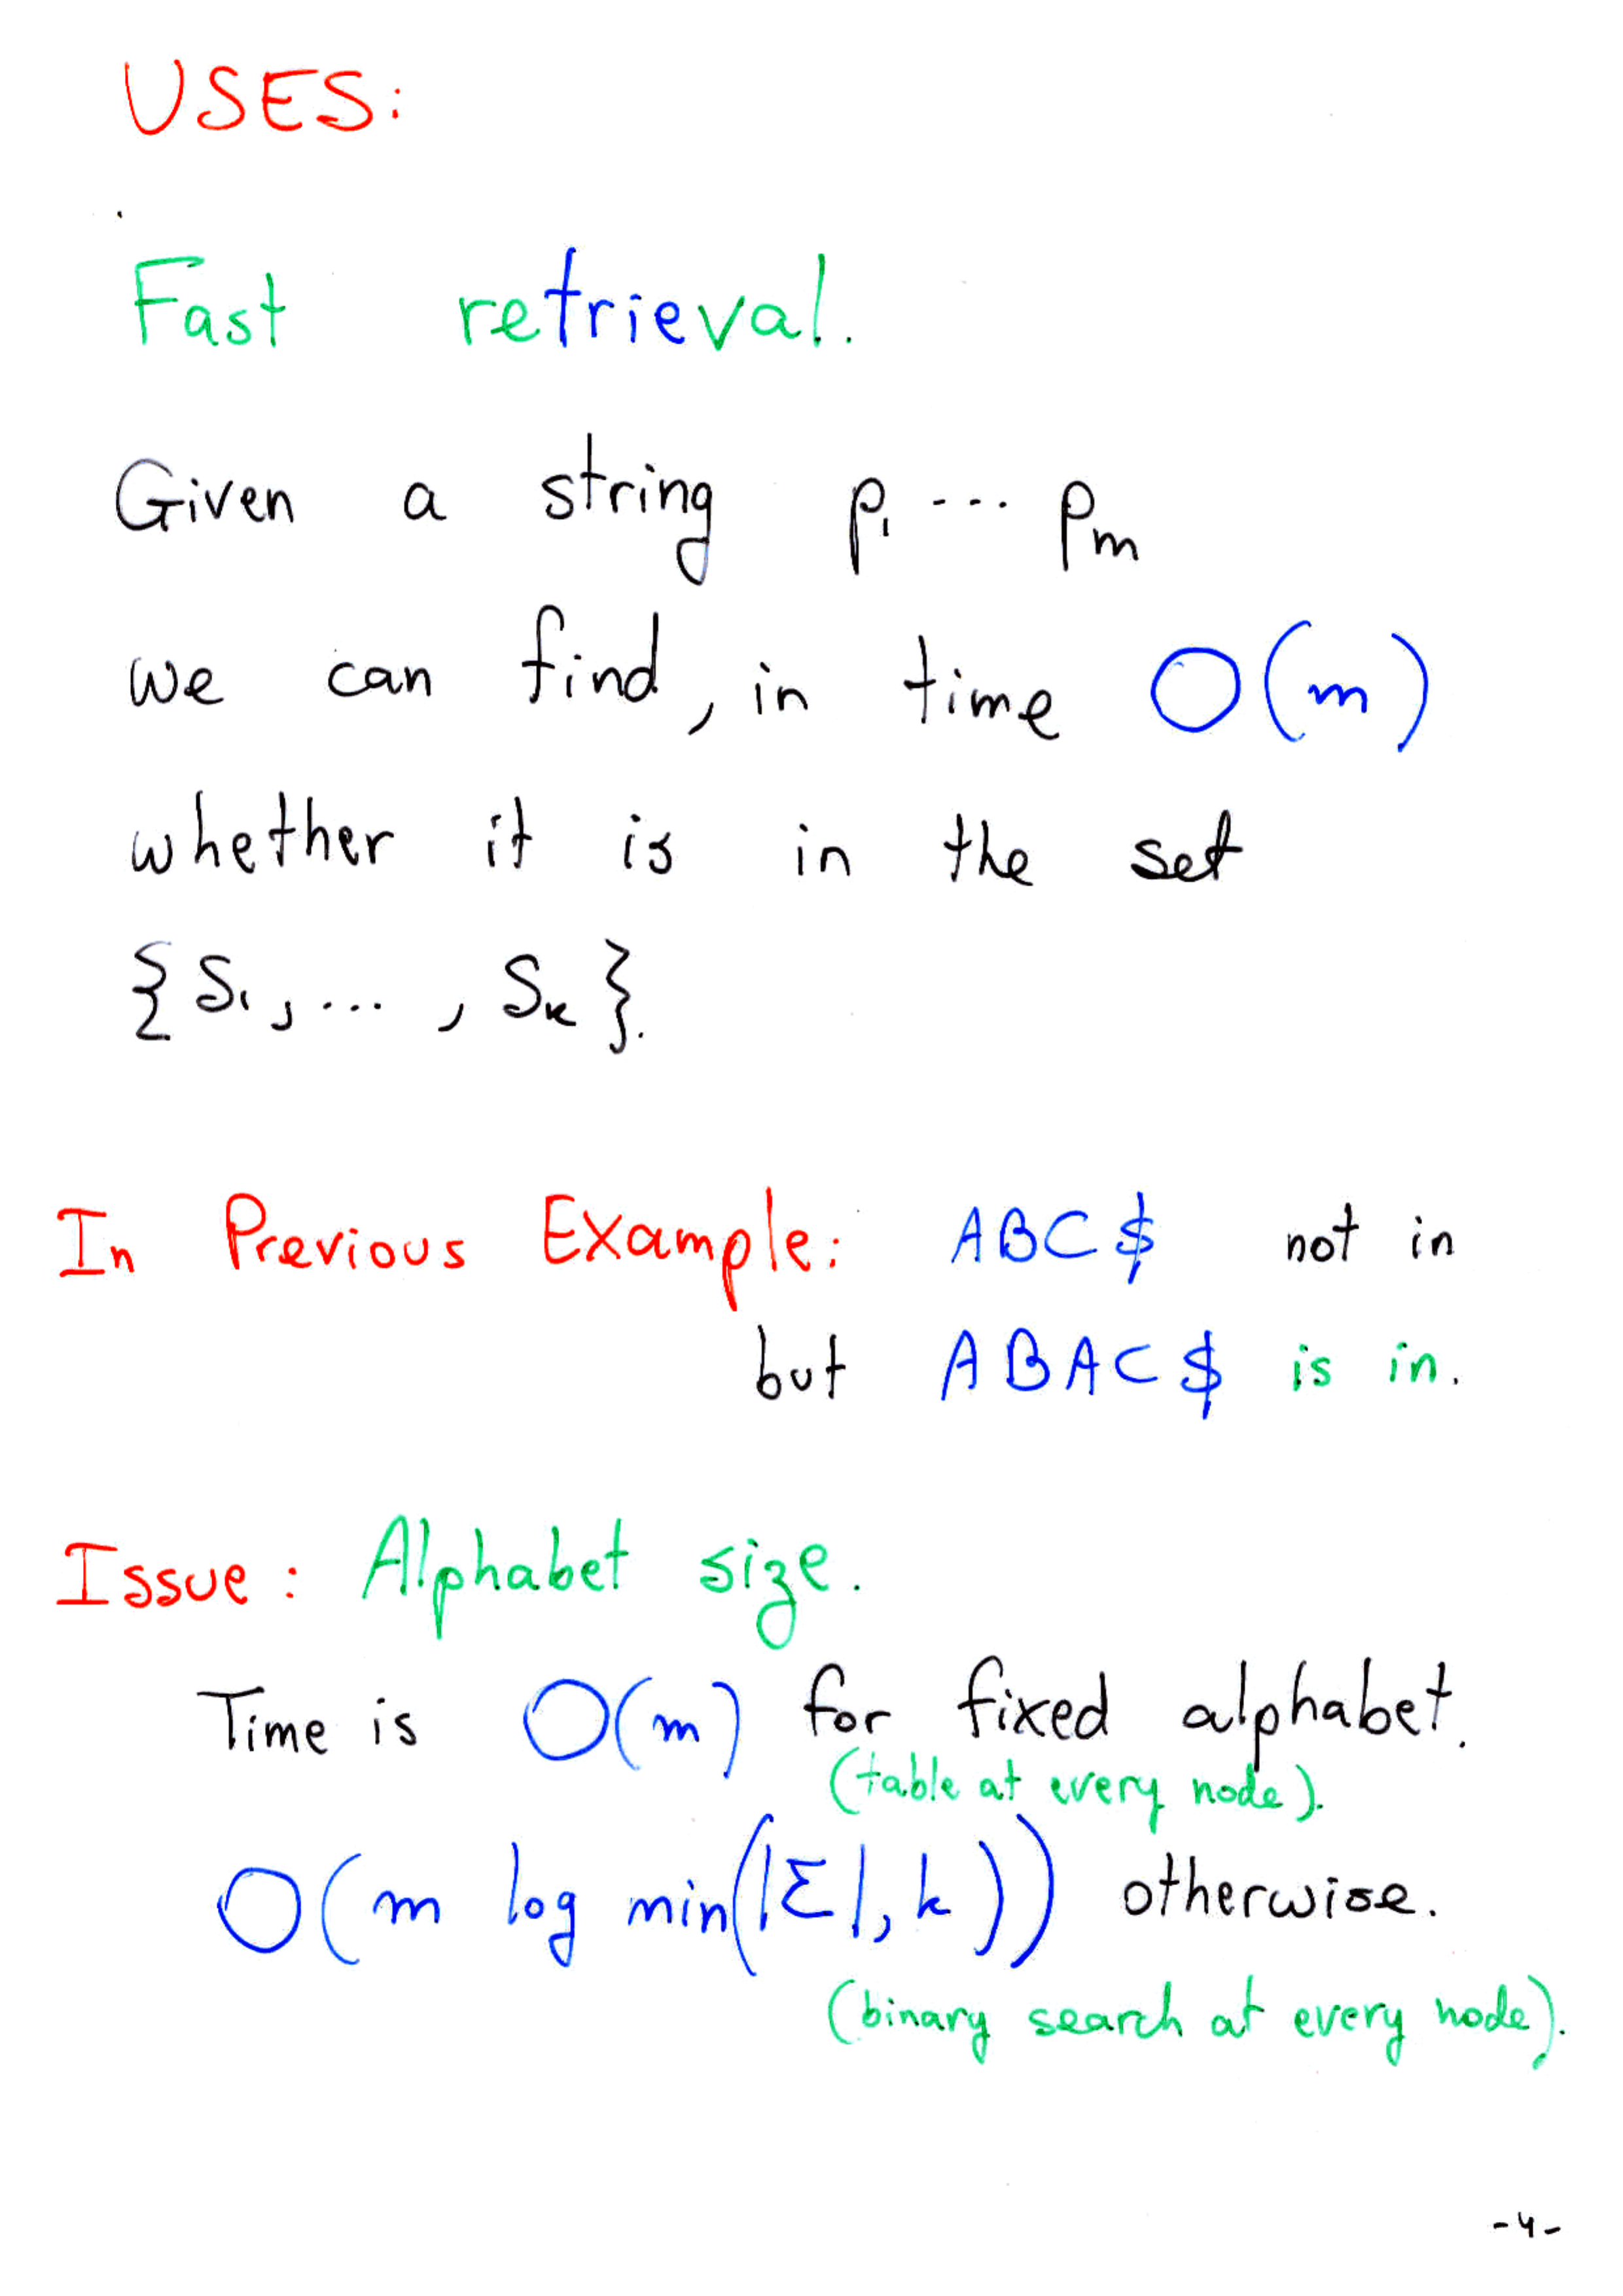 USES:
Fast retrieval.
Given a string p₁ ... pₘ
we can find, in time O(m)
whether it is in the set
{S₁, ... , Sₖ}.
In Previous Example: ABC$ not in
but ABAC$ is in.
Issue: Alphabet size.
Time is O(m) for fixed alphabet.
(table at every node).
O(m log min(|Σ|, k)) otherwise.
(binary search at every node).
-4-